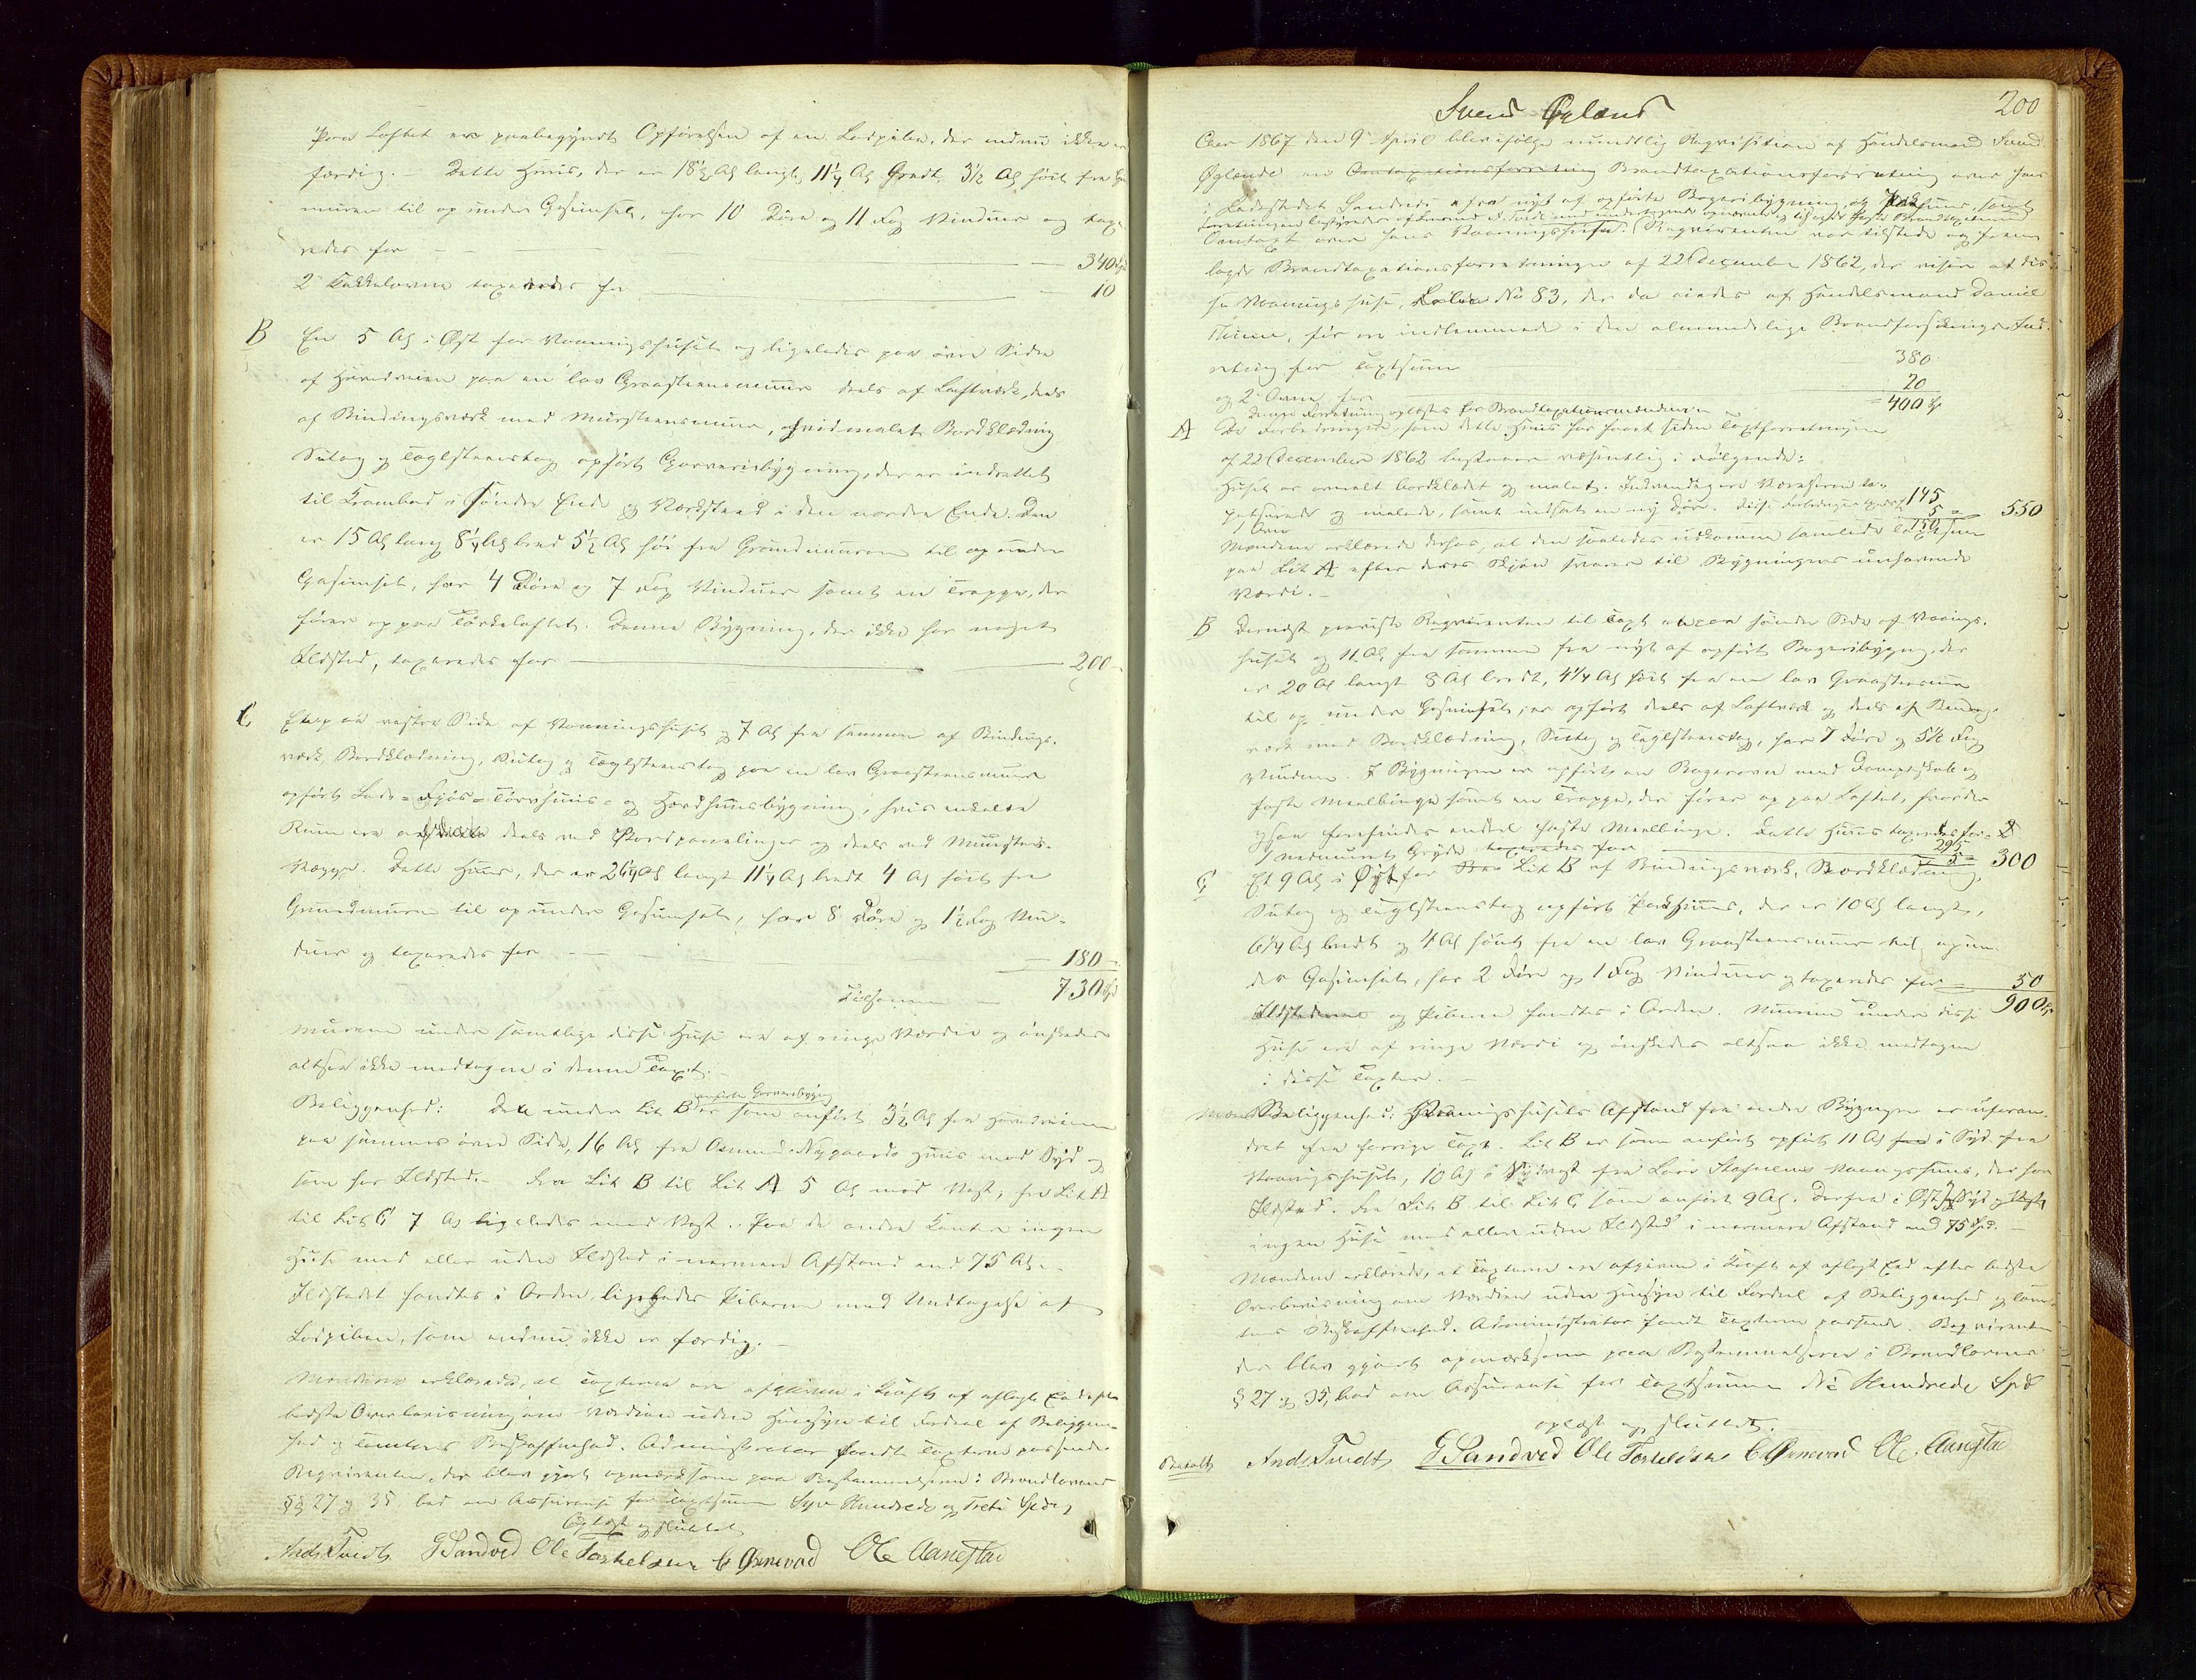 Paa Loftet er paabegyndt Opførelsen af en Lodpibe, der endnu ikke er
færdig. – Dette Huus, der er 18½ Al langt, 11¼ Al bredt, 3½ Al høit fra
muren til op under Gesimset, har 10 Døre og 11 Fag Vinduer og taxe-
redes for — 340 Spd
2 Kakkelovne taxeredes for — 10
B En 5 Al i Øst for Vaaningshuset og ligeledes paa øvre Side
af Hovedveien paa en lav Graasteensmuur deels af Laftværk, deels
af Bindingsværk med Mursteensmuur, hvidmalet Bordklædning
Sutag og Taglsteenstag opført Garveribygning, der er indrettet
til Krambod i søndre Ende og Værksted i den nordre Ende. Den
er 15 Al lang 8¼ Al bred 5½ Al høi fra Grundmuren til op under
Gesimset, har 4 Døre og 7 Fag Vinduer samt en Trappe, der
fører op paa Tørkeloftet. Denne Bygning, der ikke har noget
Ildsted, taxeredes for — 200 –
C Et paa vestre Side af Vaaningshuset og 7 Al fra samme af Bindings-
værk, Bordklædning, Sutag og Taglsteenstag paa en lav Graasteensmuur
opført Lade- Fjøs- Tørvhuus- og bygning, hvis enkelte
Rum ere deels ved Bordpanelinger og deels ved Muursteens-
Vægge. Dette Huus, der er 26¼ Al langt 11¼ Al bredt 4 Al høit fra
Grundmuren til op under Gesimset, har 8 Døre og 1½ Fag Vin-
duer og taxeredes for — 180 –
Tilsammen — 730 Spd
Murene under samtlige disse Huse ere af ringe Værdie og ønskedes
altsaa ikke medtagne i denne Taxt. –
anførte Garveribygning
Beliggenhed: Den under Lit B er som anført 3½ Al fra Hovedveien
paa sammes øvre Side, 16 Al fra Osmund Nygaards Huus mod Syd og
som har Ildsted. – Fra Lit B til Lit A 5 Al mod Vest, fra Lit A
til Lit C 7 Al ligeledes mod Vest. Paa de andre Kanter ingen
Huse med eller uden Ildsted i nærmere Afstand end 75 Al. –
Ildstedet fandtes i Orden, ligeledes Piberne med Undtagelse af
Lodpiben, som endnu ikke er færdig. –
Mændene erklærede, at Taxterne ere afgivne i Kraft af aflagte Ed efter
bedste Overbeviisning om Værdien uden Hensyn til Fordeel af Beliggen-
hed og Tomtens Beskaffenhed. Administrator fandt Taxterne passende.
Reqvirenten, der blev gjort opmærksom paa Bestemmelserne i Brandlovens
§§ 27 og 35, bad om Assurance for Taxtsummen Syv Hundrede og Treti Spd.
Oplæst og sluttet
Ands Tvedt G Sandved Ole Torkelsen C Ørnevad Ole Aanestad
200
Svend Øglænd
Aar 1867 den 9' April blev ifølge mundtlig Reqvisition af Handelsmand Svend
Øglænd en Omtaxationsforretning Brandtaxationsforretning over hans
i Ladestedet Sandnes fra nyt af opførte Bageribygning, og Pakhuus, samt
Omtaxt over hans Vaaningshuus. Reqvirenten var tilstede og frem-
lagde Brandtaxationsforretningen af 22 December 1862, der viser at dis-
se Vaaningshuse, No 83, der da eiedes af Handelsmand Daniel
før ere indlemmede i den almindelige Brandforsikrings Ind-
retning for Taxtsum — 380
og 2 Ovne for — 20
400 Spd
Denne Forretning oplæstes for Brandtaxationsmændene
A De Forbedringer, som dette Huus har faaet siden Taxtforretningen
af 22 December 1862 bestaaer væsentlig i Følgende:
Huset er omalt bordklædet og malet. Indvendig ere Værelserne ta-
petserede og malede, samt indsat en ny Dør. Disse Forbedringer 145
1 Ovn 5 = 550
150
Mændene erklærede derhos, at den saaledes udkomne samlede Taxtsum
paa Lit A efter deres Skjøn svarer til Bygningens nuhavende
Værdi. –
B Dernæst paaviste Reqvirenten til Taxt paa søndre Side af Vaanings-
huset og 11 Al fra samme fra nyt af opført Bageribygning, der
er 20 Al langt 8 Al bredt, 4¼ Al høit fra en lav Graasteensmuur
til op under Gesimset, er opført deels af Laftværk og deels af Bindings-
værk med Bordklædning, Sutag og Taglsteenstag, har 7 Døre og 5½ Fag
Vinduer. I Bygningen er opført en Bagerovn med Dampeskab og
faste Meelbinger samt en Trappe, der fører op paa Loftet, hvor der
ogsaa forefindes endeel faste Meelbinge. Dette Huus taxeredes for
1 indmuret Gryde taxeredes for — 295
5 = 300
C Et 9 Al i Øst for Lit B af Bindingsværk, Bordklædning,
Sutag og Taglsteenstag opført Pakhuus, der er 10 Al langt,
6¼ Al bredt og 4 Al høit fra en lav Graasteensmuur til op un-
der Gesimset, har 2 Døre og 1 Fag Vinduer og taxeredes for — 50
900 Spd
Ildstederne og Piberne fandtes i Orden. Murene under disse
Huse ere af ringe Værdi og ønskedes altsaa ikke medtagne
i disse Taxter. –
Beliggenhed: Vaaningshusets Afstand fra andre Bygninger er uforan-
dret fra forrige Taxt. Lit B er som anført opført 11 Al i Syd fra
Vaaningshuset, 10 Al i Sydvest fra Lars Vaaningshuus, der har
Ildsted. Fra Lit B til Lit C som anført 9 Al. Derfra i Øst, Syd og Vest
ingen Huse med eller uden Ildsted i nærmere Afstand end 75 Al. –
Mændene erklærede, at Taxterne ere afgivne i Kraft af aflagt Ed efter bedste
Overbeviisning om Værdien uden Hensyn til Fordeel af Beliggenhed og Tom-
tens Beskaffenhed. Administrator fandt Taxterne passende. Reqvirenten
der blev gjort opmærksom paa Bestemmelserne i Brandlovens
§ 27 og 35, bad om Assurance for Taxtsummen Ni Hundrede Spd
oplæst og sluttet.
Betalt Ands Tvedt G Sandved Ole Torkelsen C Ørnevad Ole Aanestad